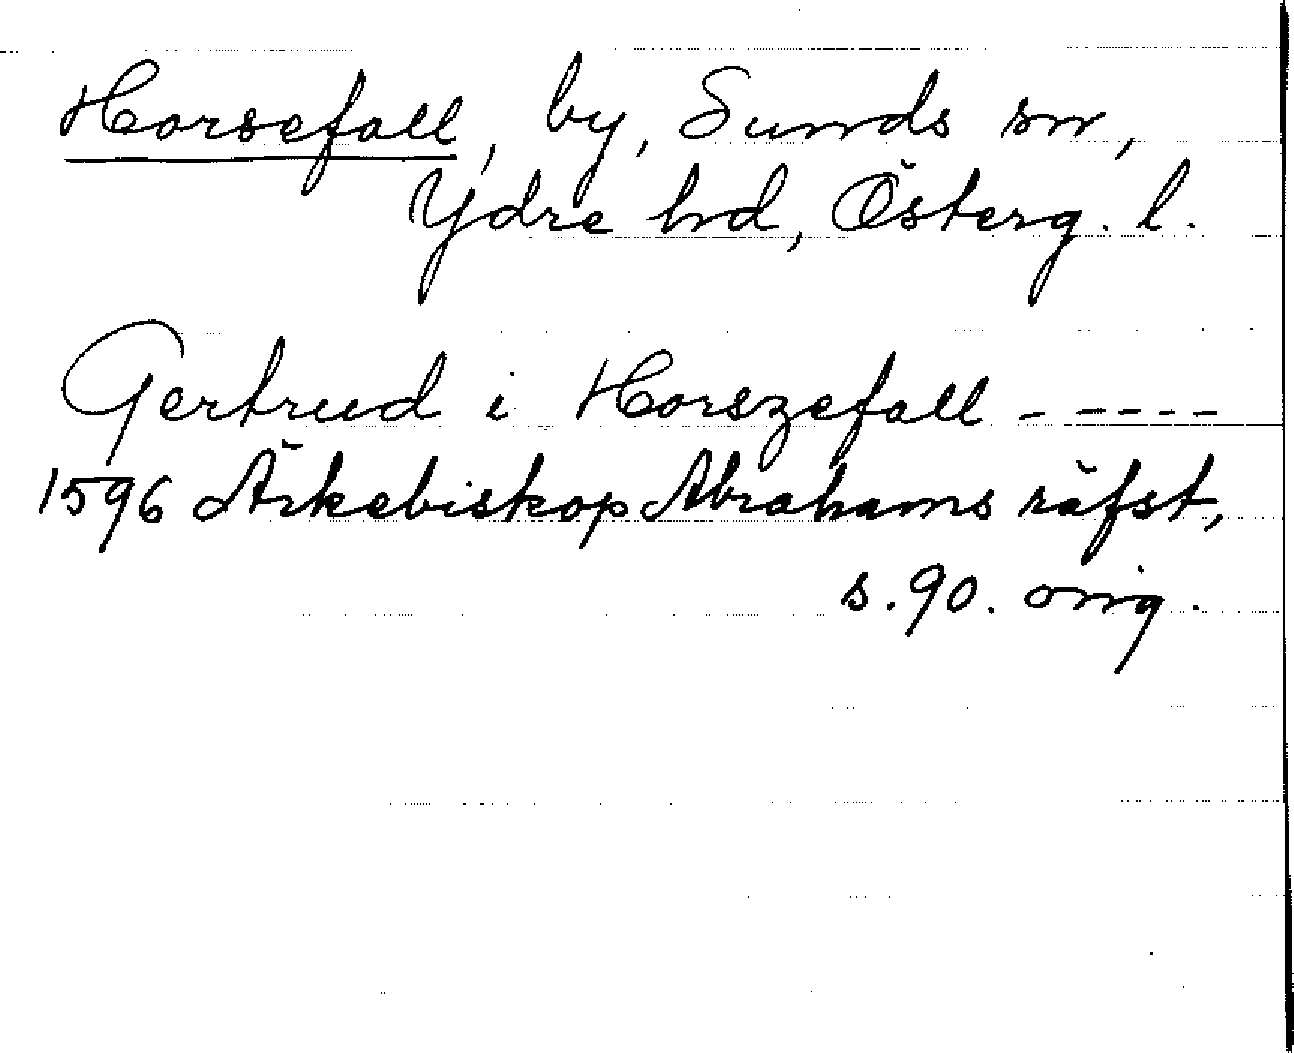 Horsefall, by, Sunds sn,
Ydre hrd, Österg. l.
Gertrud i Horszefall - - - - -
1596 Ärkebiskop Abrahams räfst,
s. 90. orig.